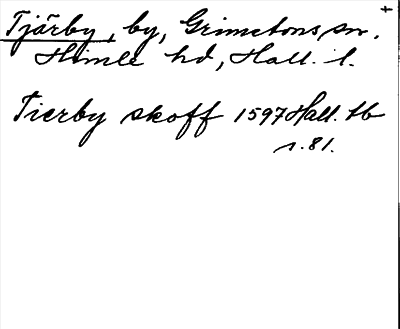 Tjärby, by, Grimetons sn.
Himle hd, Hall. l.
Tierby skoff 1597 Hall. tb
s. 81.